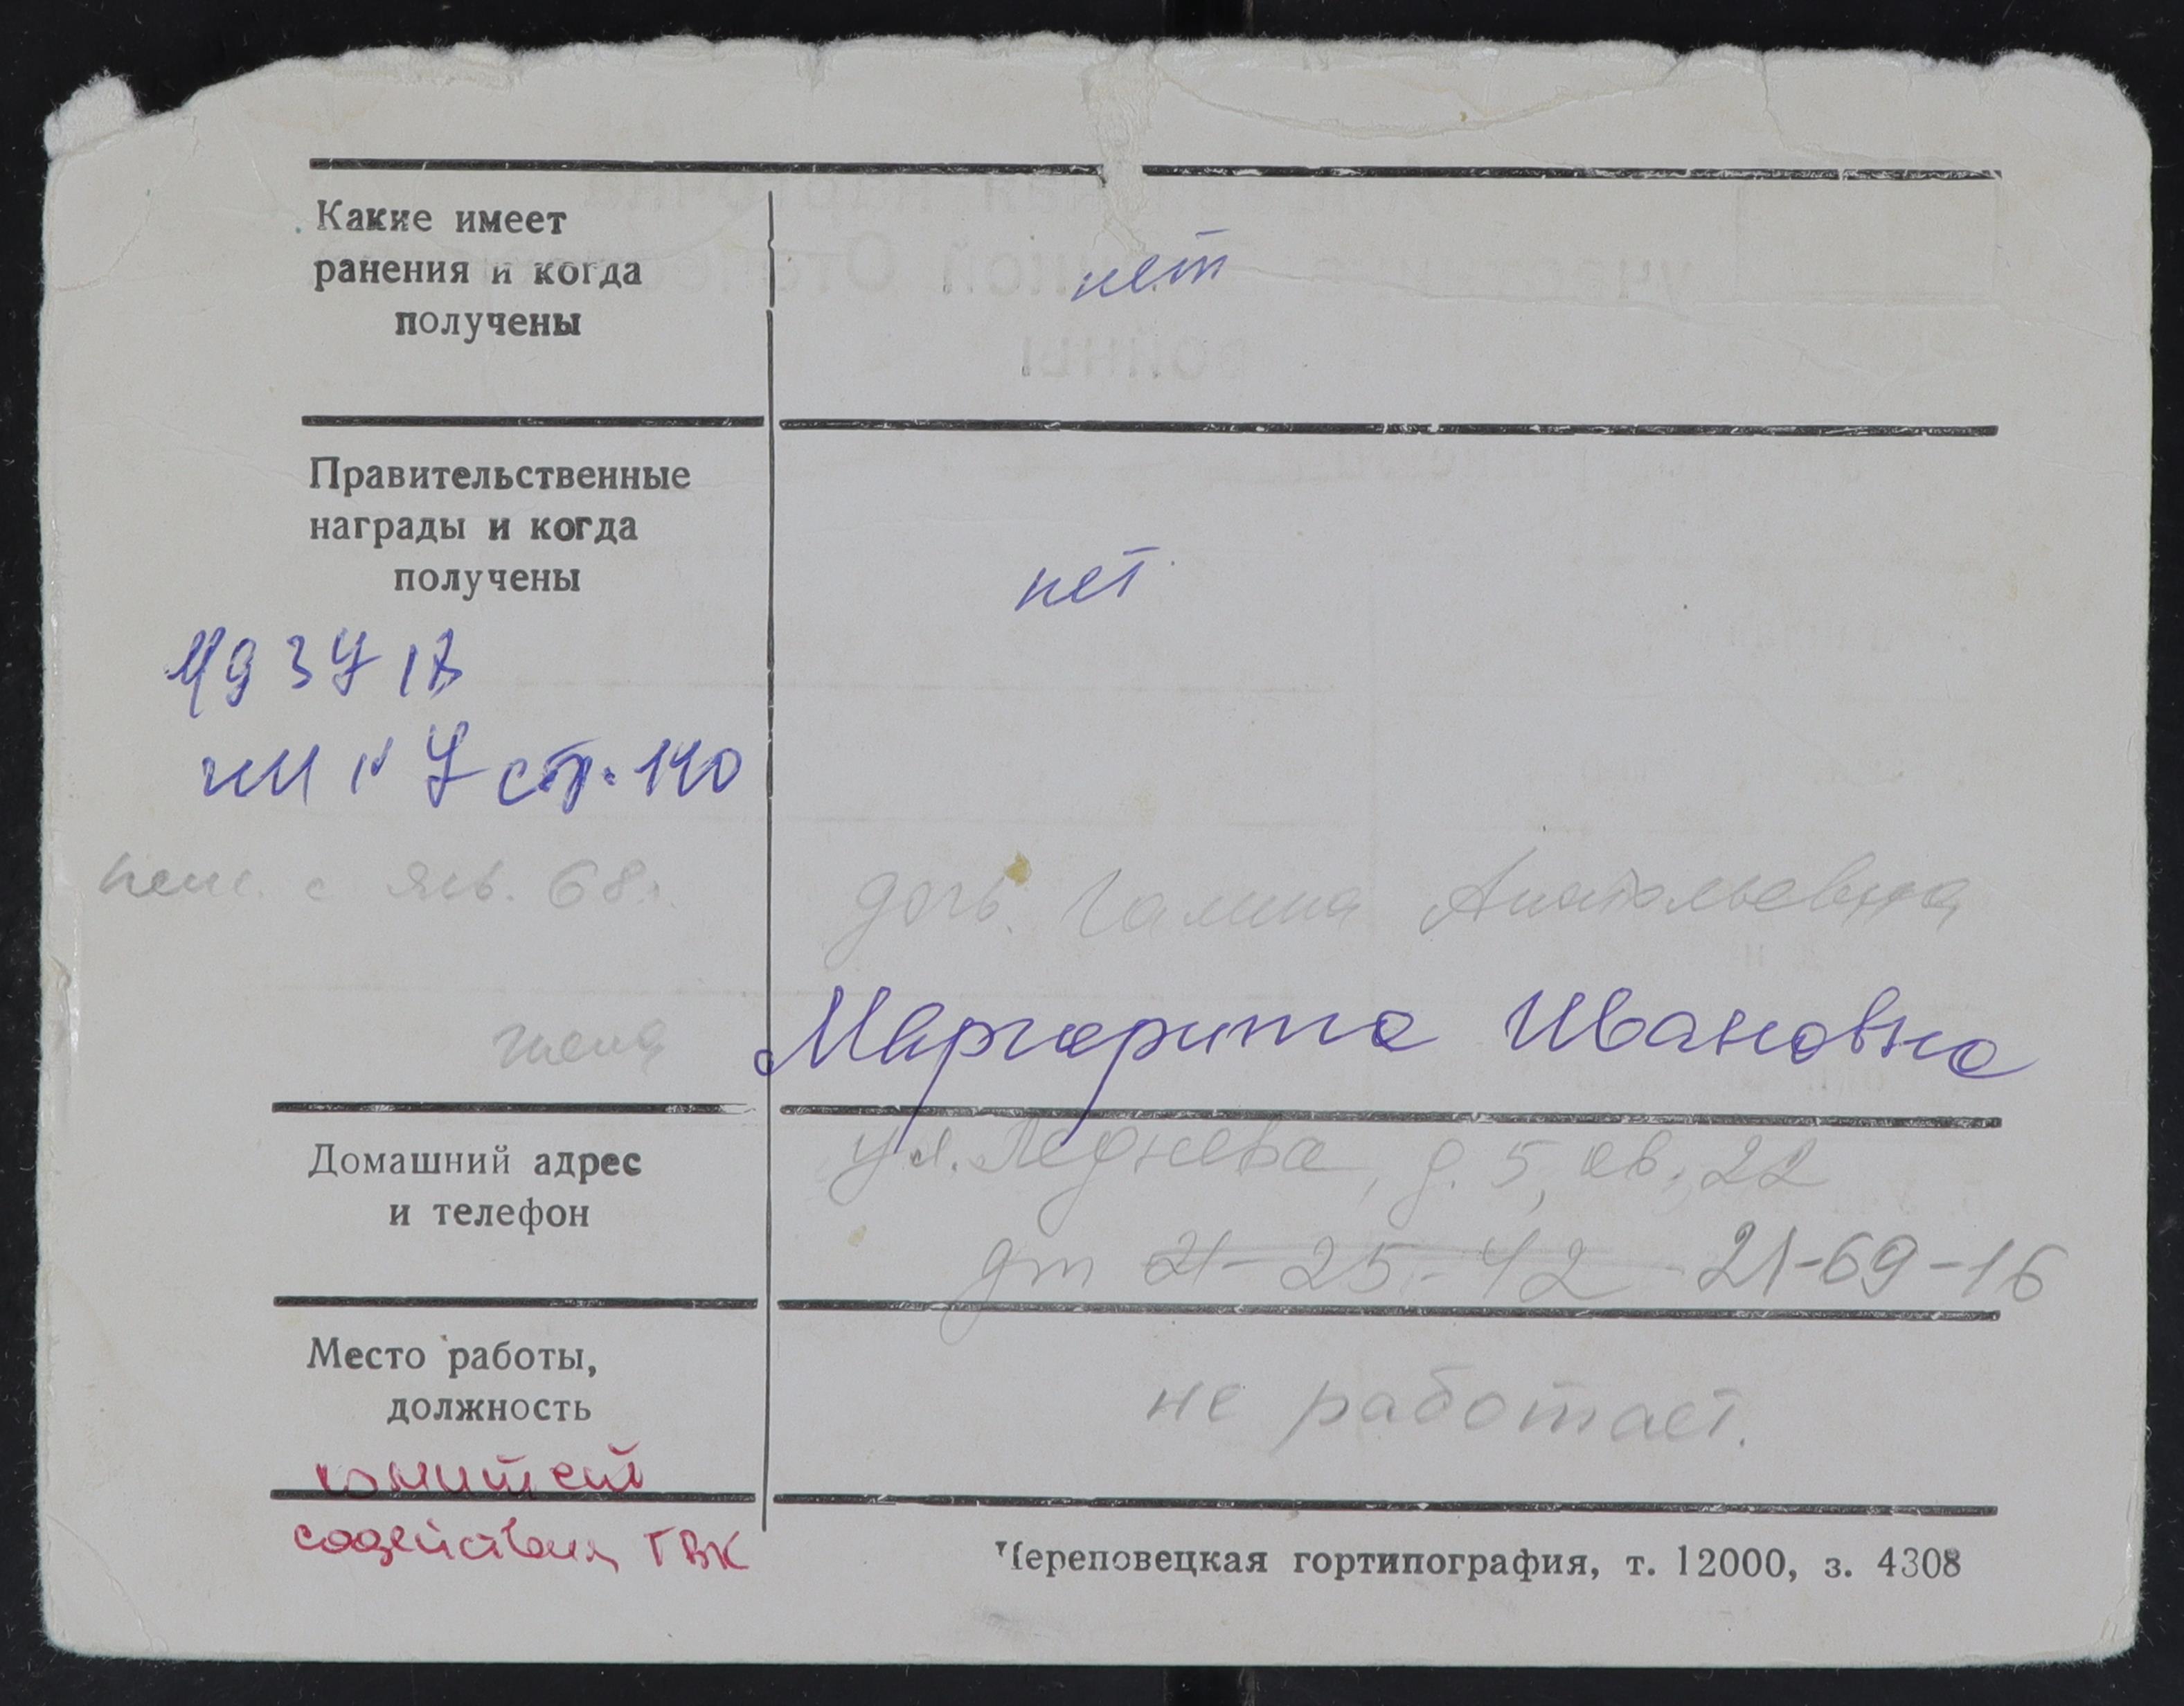 Какие имеет
ранения и когда
получены
нет
Правительственные
награды и когда
получены
нет
стр. 140
пенс. с янв. 68г.
дочь. Галина Анатольевна
жена Маргарита Ивановна
Домашний адрес
и телефон
ул. Леднева, д. 5, кв. 22
дт 21-25-42 21-69-16
Место работы,
должность
не работает.
комитет
содействия ГВК
Череповецкая гортипография, т. 12000, з. 4308